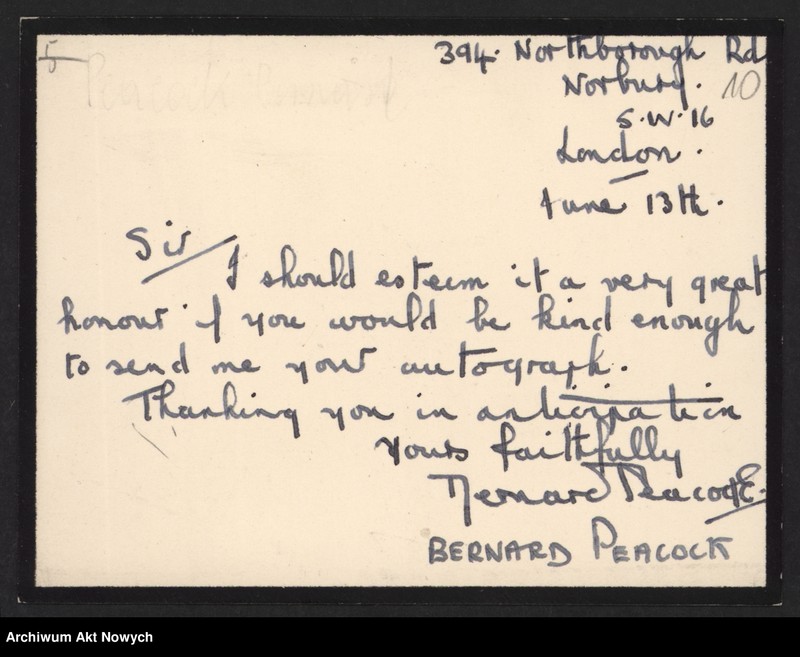 5
394. Northborough Rd
Norbury.
10
S.W.16
London.
June 13th.
Sir
I should esteem it a very great
honour if you would be kind enough
to send me your autograph.
Thanking you in anticipation
Yours faithfully
Bernard Peacock.
BERNARD PEACOCK
Archiwum Akt Nowych